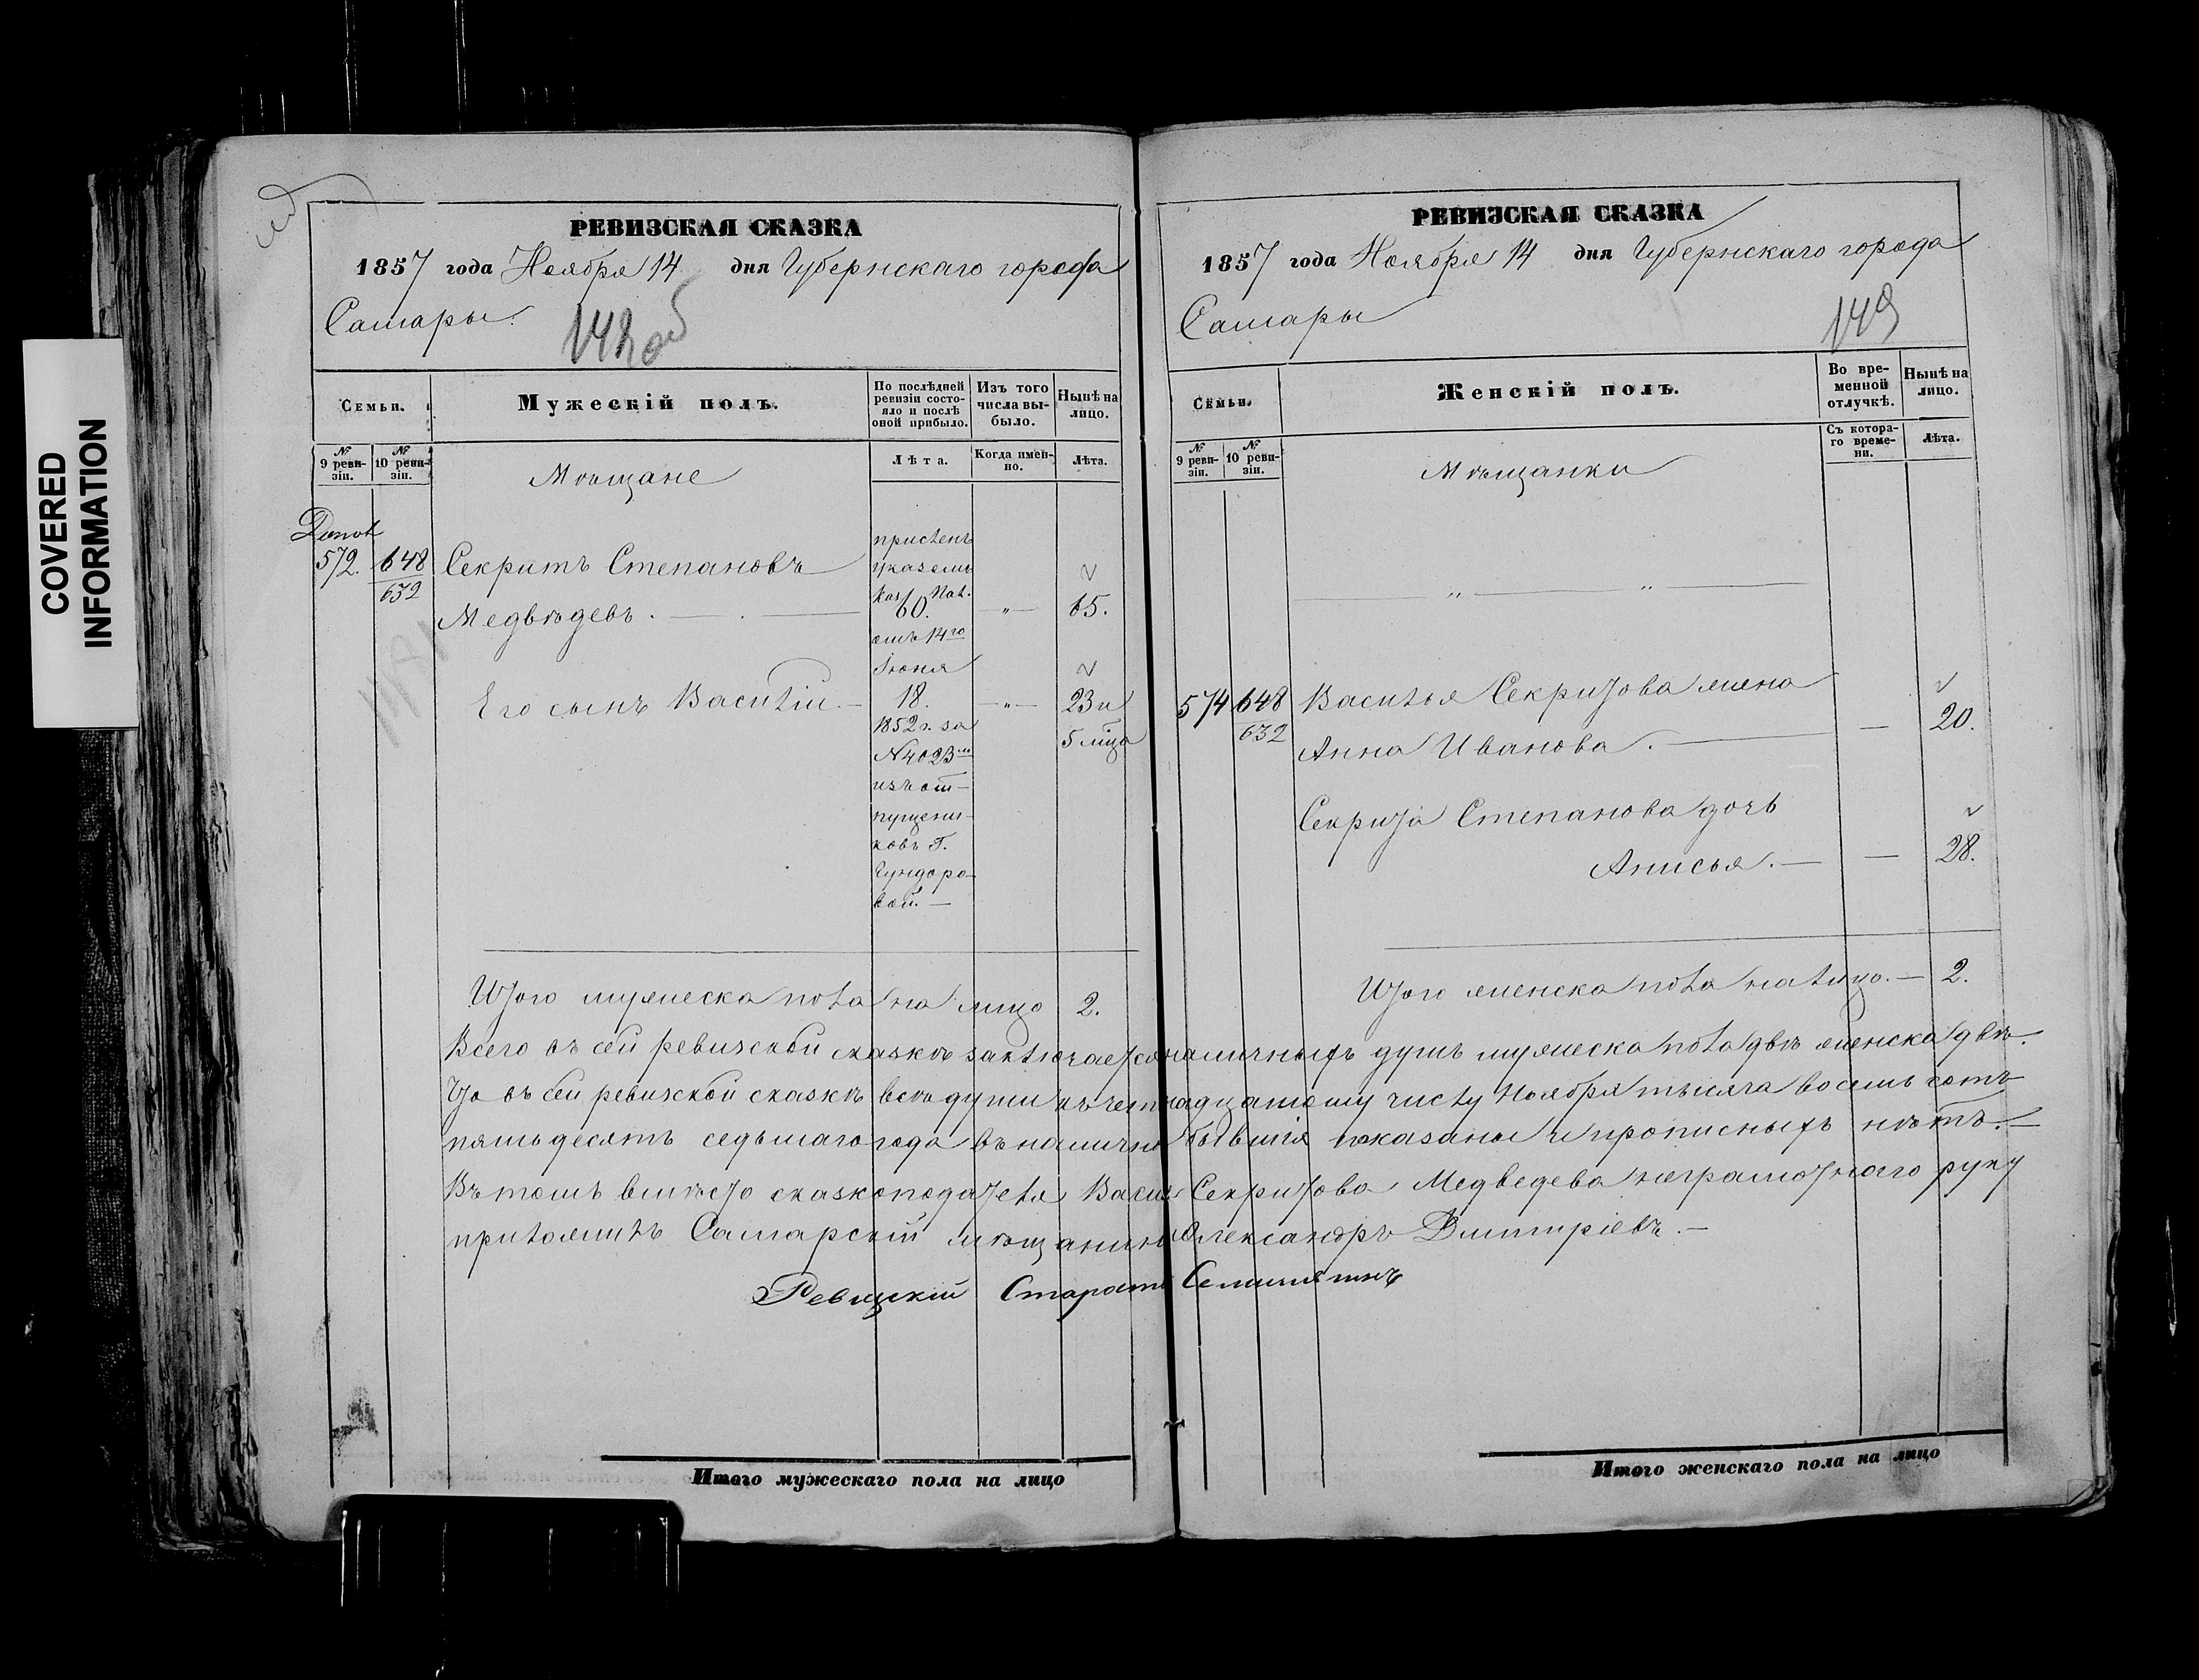 COVERED
INFORMATION
РЕВИЗСКАЯ СКАЗКА
1857 года Ноября 14 дня Губернскаго города
Самары.
142 об
Семьи.
Мужескій полъ.
По послѣдней ревизіи состояло и послѣ оной прибыло.
Изъ того числа выбыло.
Нынѣ на лицо.
№ 9 ревизіи.
№ 10 ревизіи.
Мѣщане
Лѣта.
Когда именно.
Лѣта.
Допол
572. 648
632
Секритъ Степановъ
Медвѣдевъ.
причсленъ
указомъ
Каз. Пал.
60. — " — 65.
отъ 14го
Іюня
Его сынъ Василій — 18. — " — 23 и
5 мѣця
1852 г. за
N 4023м
изъ от-
пущени-
ковъ Г.
Чундоро-
вой. —
Итого мужеска пола на лицо 2.
РЕВИЗСКАЯ СКАЗКА
1857 года Ноября 14 дня Губернскаго города
Самары
149
Семьи.
Женскій полъ.
Во временной отлучкѣ.
Нынѣ на лицо.
№ 9 ревизіи.
№ 10 ревизіи.
Мѣщанки
Съ котораго времени.
Лѣта.
" "
574 648 Василья Секритова жена
632 Анна Иванова. — — 20.
Секрита Степанова дочь
Анисья. — — 28.
Итого женска пола на лицо. — 2.
Всего въ сей ревизской сказкѣ заключается наличныхъ душъ мужеска пола двѣ женска двѣ.
Что въ сей ревизской сказкѣ всѣ души къ четырнадцатому числу Ноября тысяча восемь сотъ
пятьдесятъ седьмаго года въ наличн бывшія показаны и прописныхъ нѣтъ. —
Въ томъ вмѣсто сказкоподателя Васил Секритова Медведева неграмотнаго руку
приложилъ Самарскій мѣщанинъ Александръ Дмитріевъ. —
Ревизскій Староста
Итого мужескаго пола на лицо
Итого женскаго пола на лицо